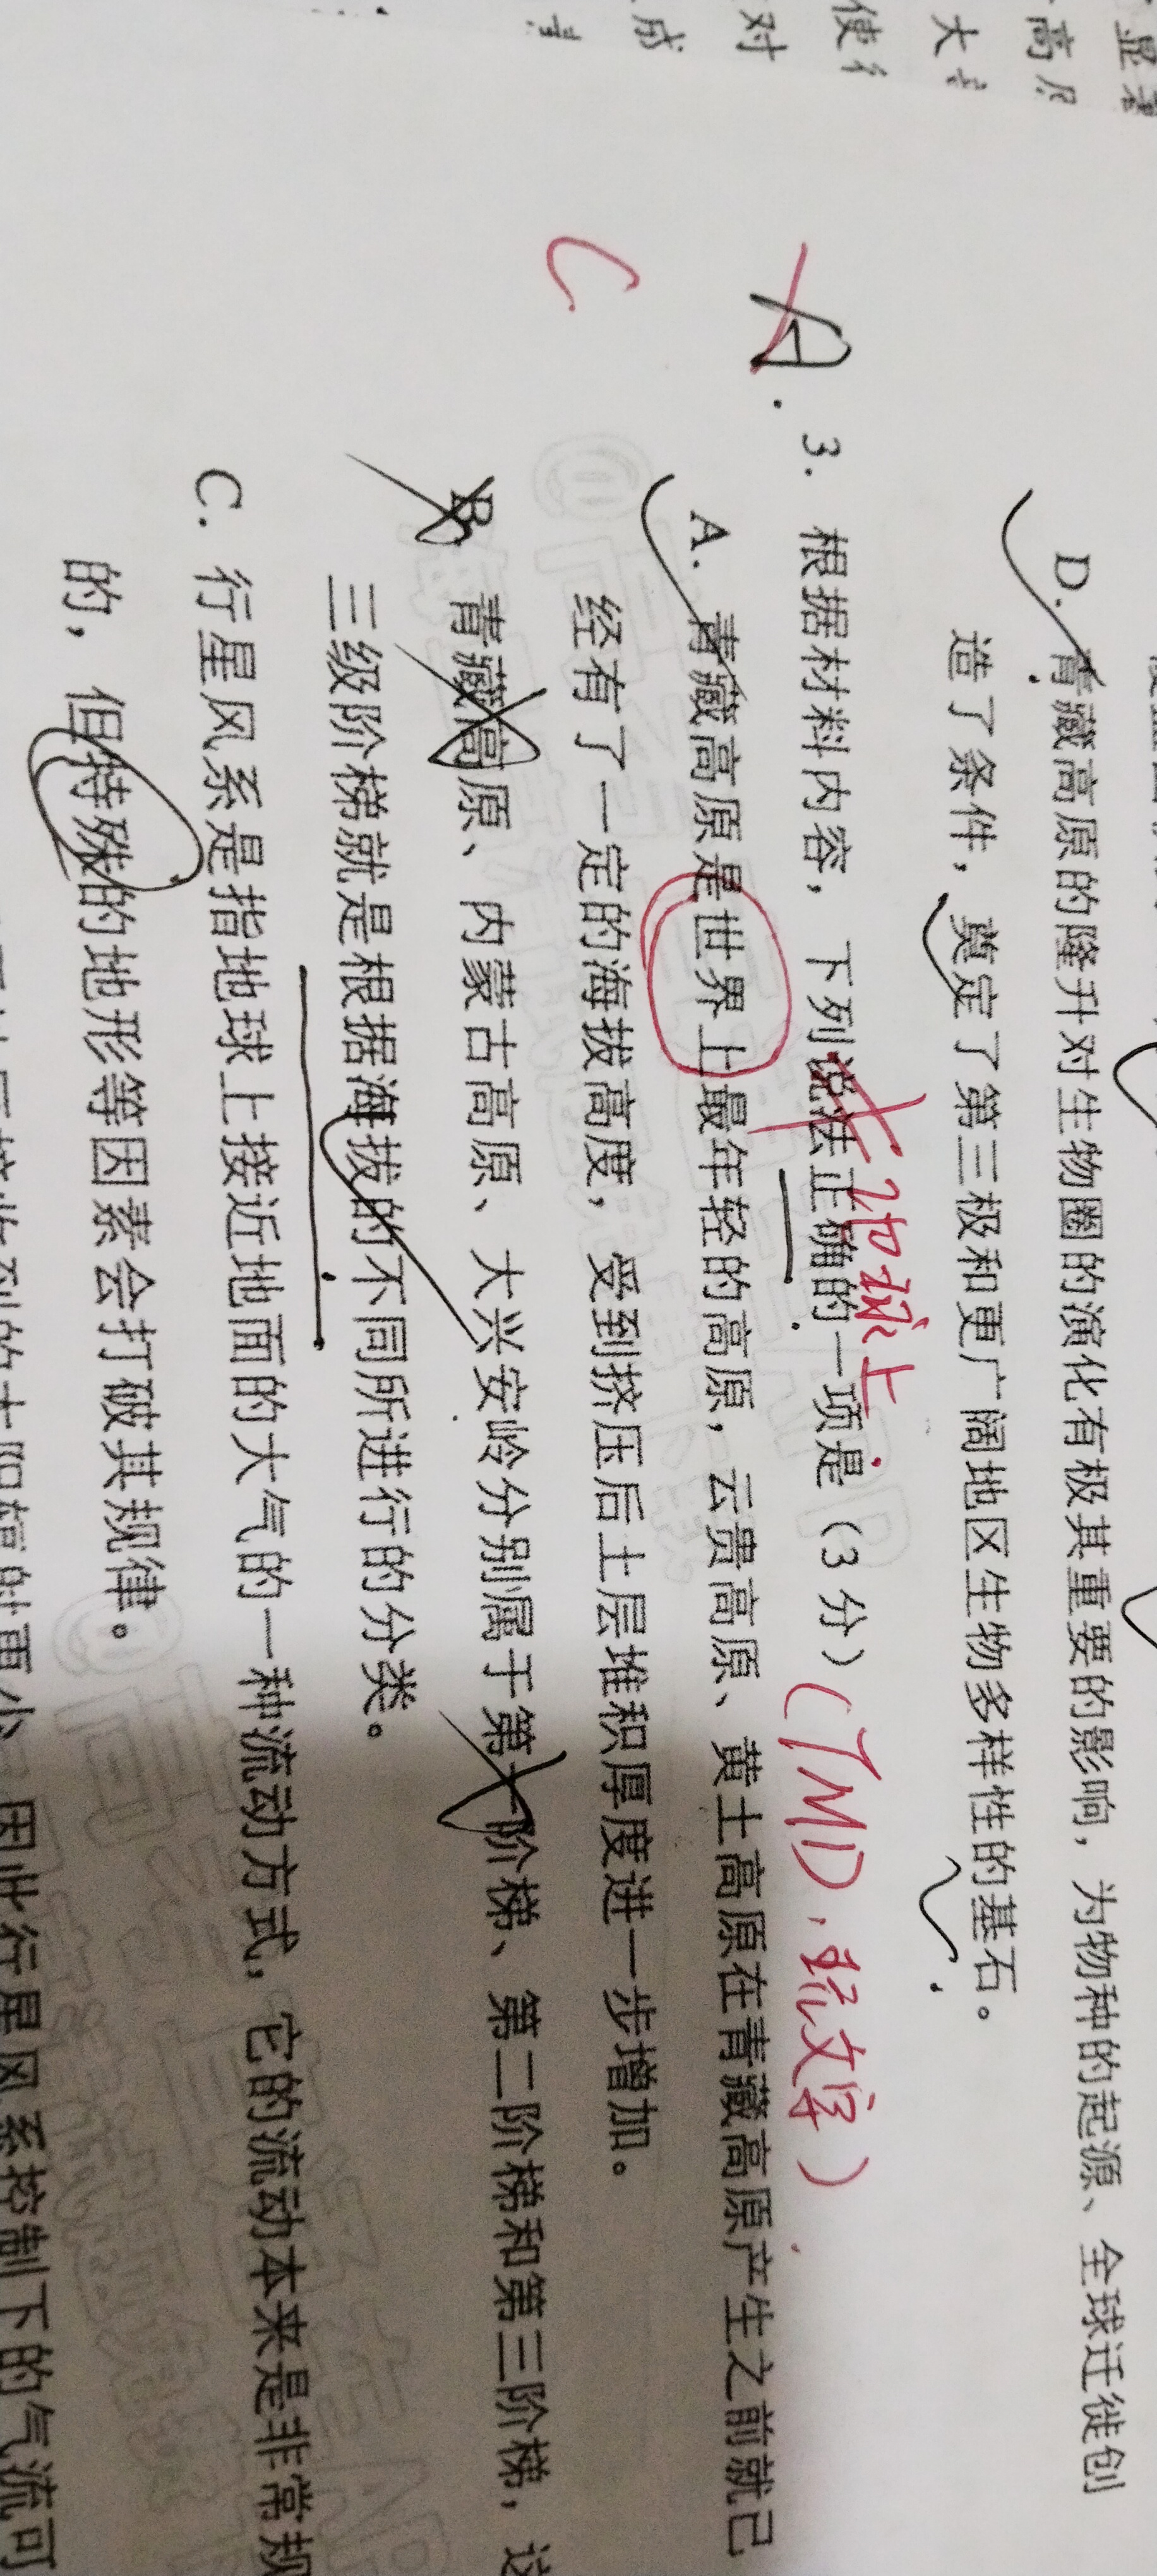 显著
高原
大
使
对
成
D. 青藏高原的隆升对生物圈的演化有极其重要的影响，为物种的起源、全球迁徙创
造了条件，奠定了第三极和更广阔地区生物多样性的基石。
地球上
A. 3. 根据材料内容，下列说法正确的一项是（3分）（TMD，
A. 青藏高原是世界上最年轻的高原，云贵高原、黄土高原在青藏高原产生之前就已
经有了一定的海拔高度，受到挤压后土层堆积厚度进一步增加。
C
B. 青藏高原、内蒙古高原、大兴安岭分别属于第一阶梯、第二阶梯和第三阶梯，这
三级阶梯就是根据海拔的不同所进行的分类。
C. 行星风系是指地球上接近地面的大气的一种流动方式，它的流动本来是非常规
的，但特殊的地形等因素会打破其规律。
因此行星风系控制下的气流可